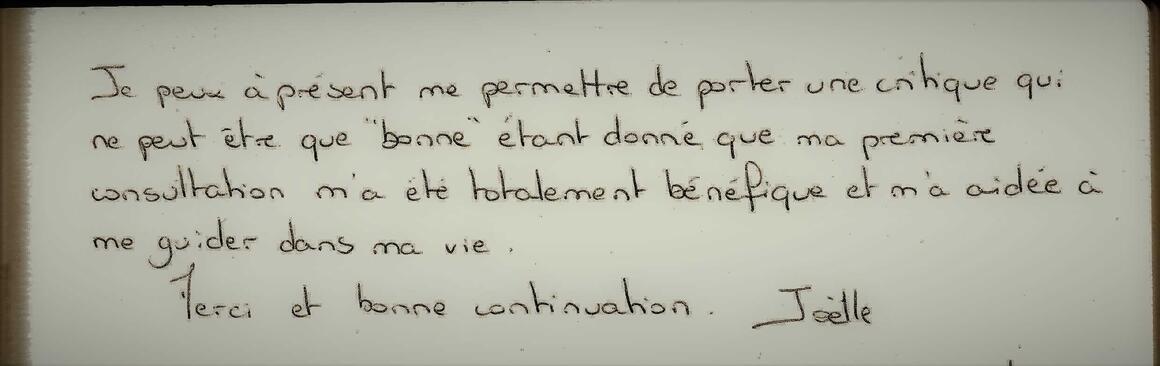 Je peux à présent me permettre de porter une critique qui
ne peut être que "bonne" étant donné que ma première
consultation m'a été totalement bénéfique et m'a aidée à
me guider dans ma vie.
Merci et bonne continuation. Joëlle